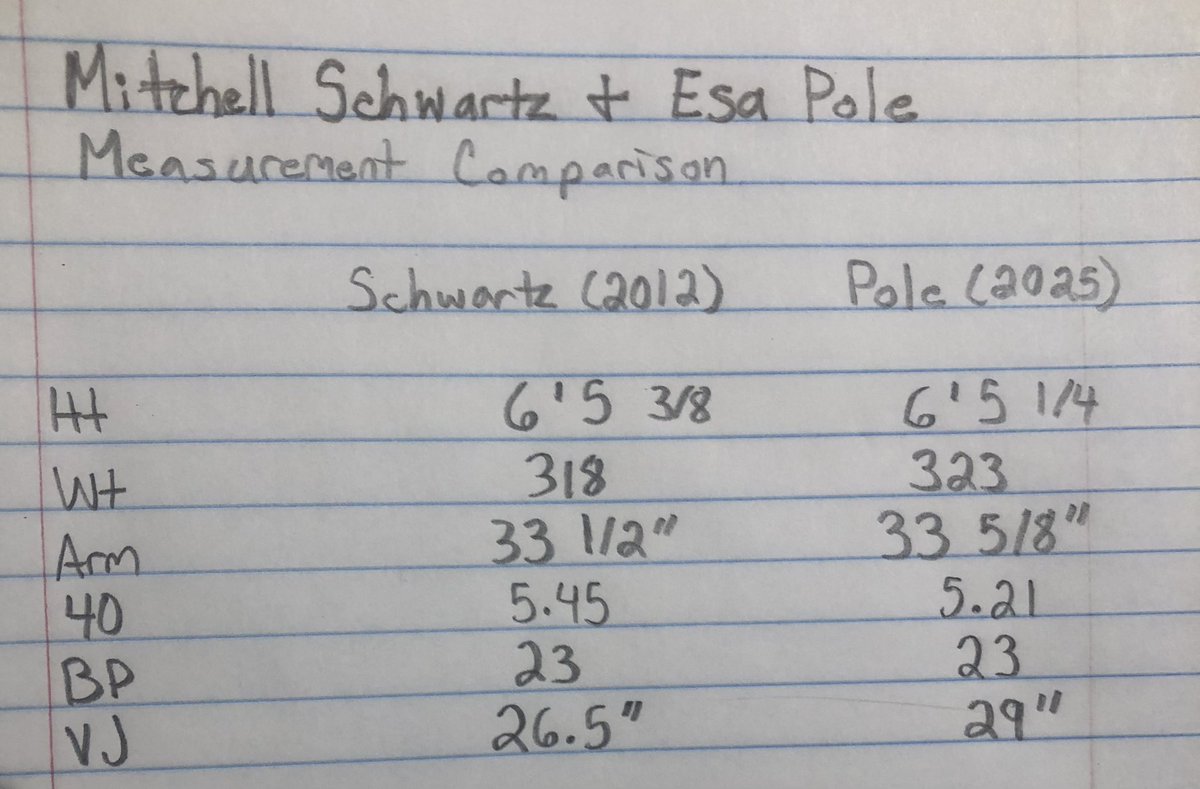 Mitchell Schwartz + Esa Pole
Measurement Comparison
Schwartz (2012) Pole (2025)
Ht 6'5 3/8 6'5 1/4
Wt 318 323
Arm 33 1/2" 33 5/8"
40 5.45 5.21
BP 23 23
VJ 26.5" 29"